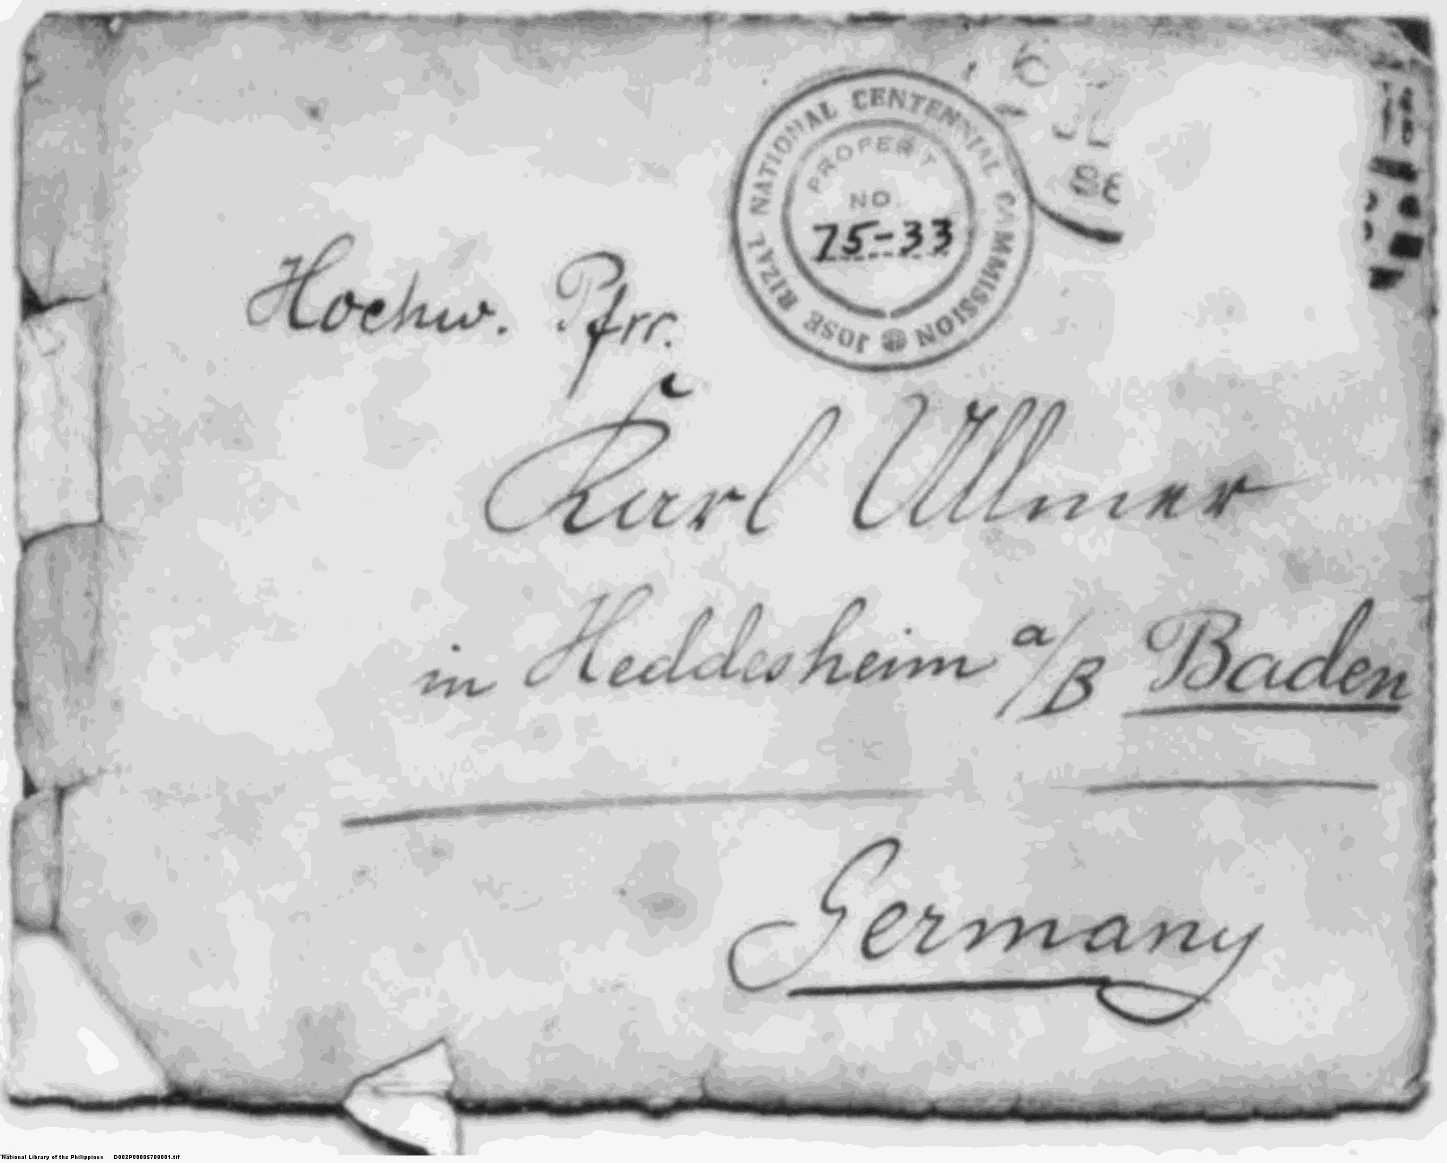 JOSE RIZAL NATIONAL CENTENNIAL COMMISSION
PROPERTY
NO.
75-33
88
Hochw. Pfrr.
Karl Ullmer
in Heddesheim a/B Baden
Germany
National Library of the Philippines